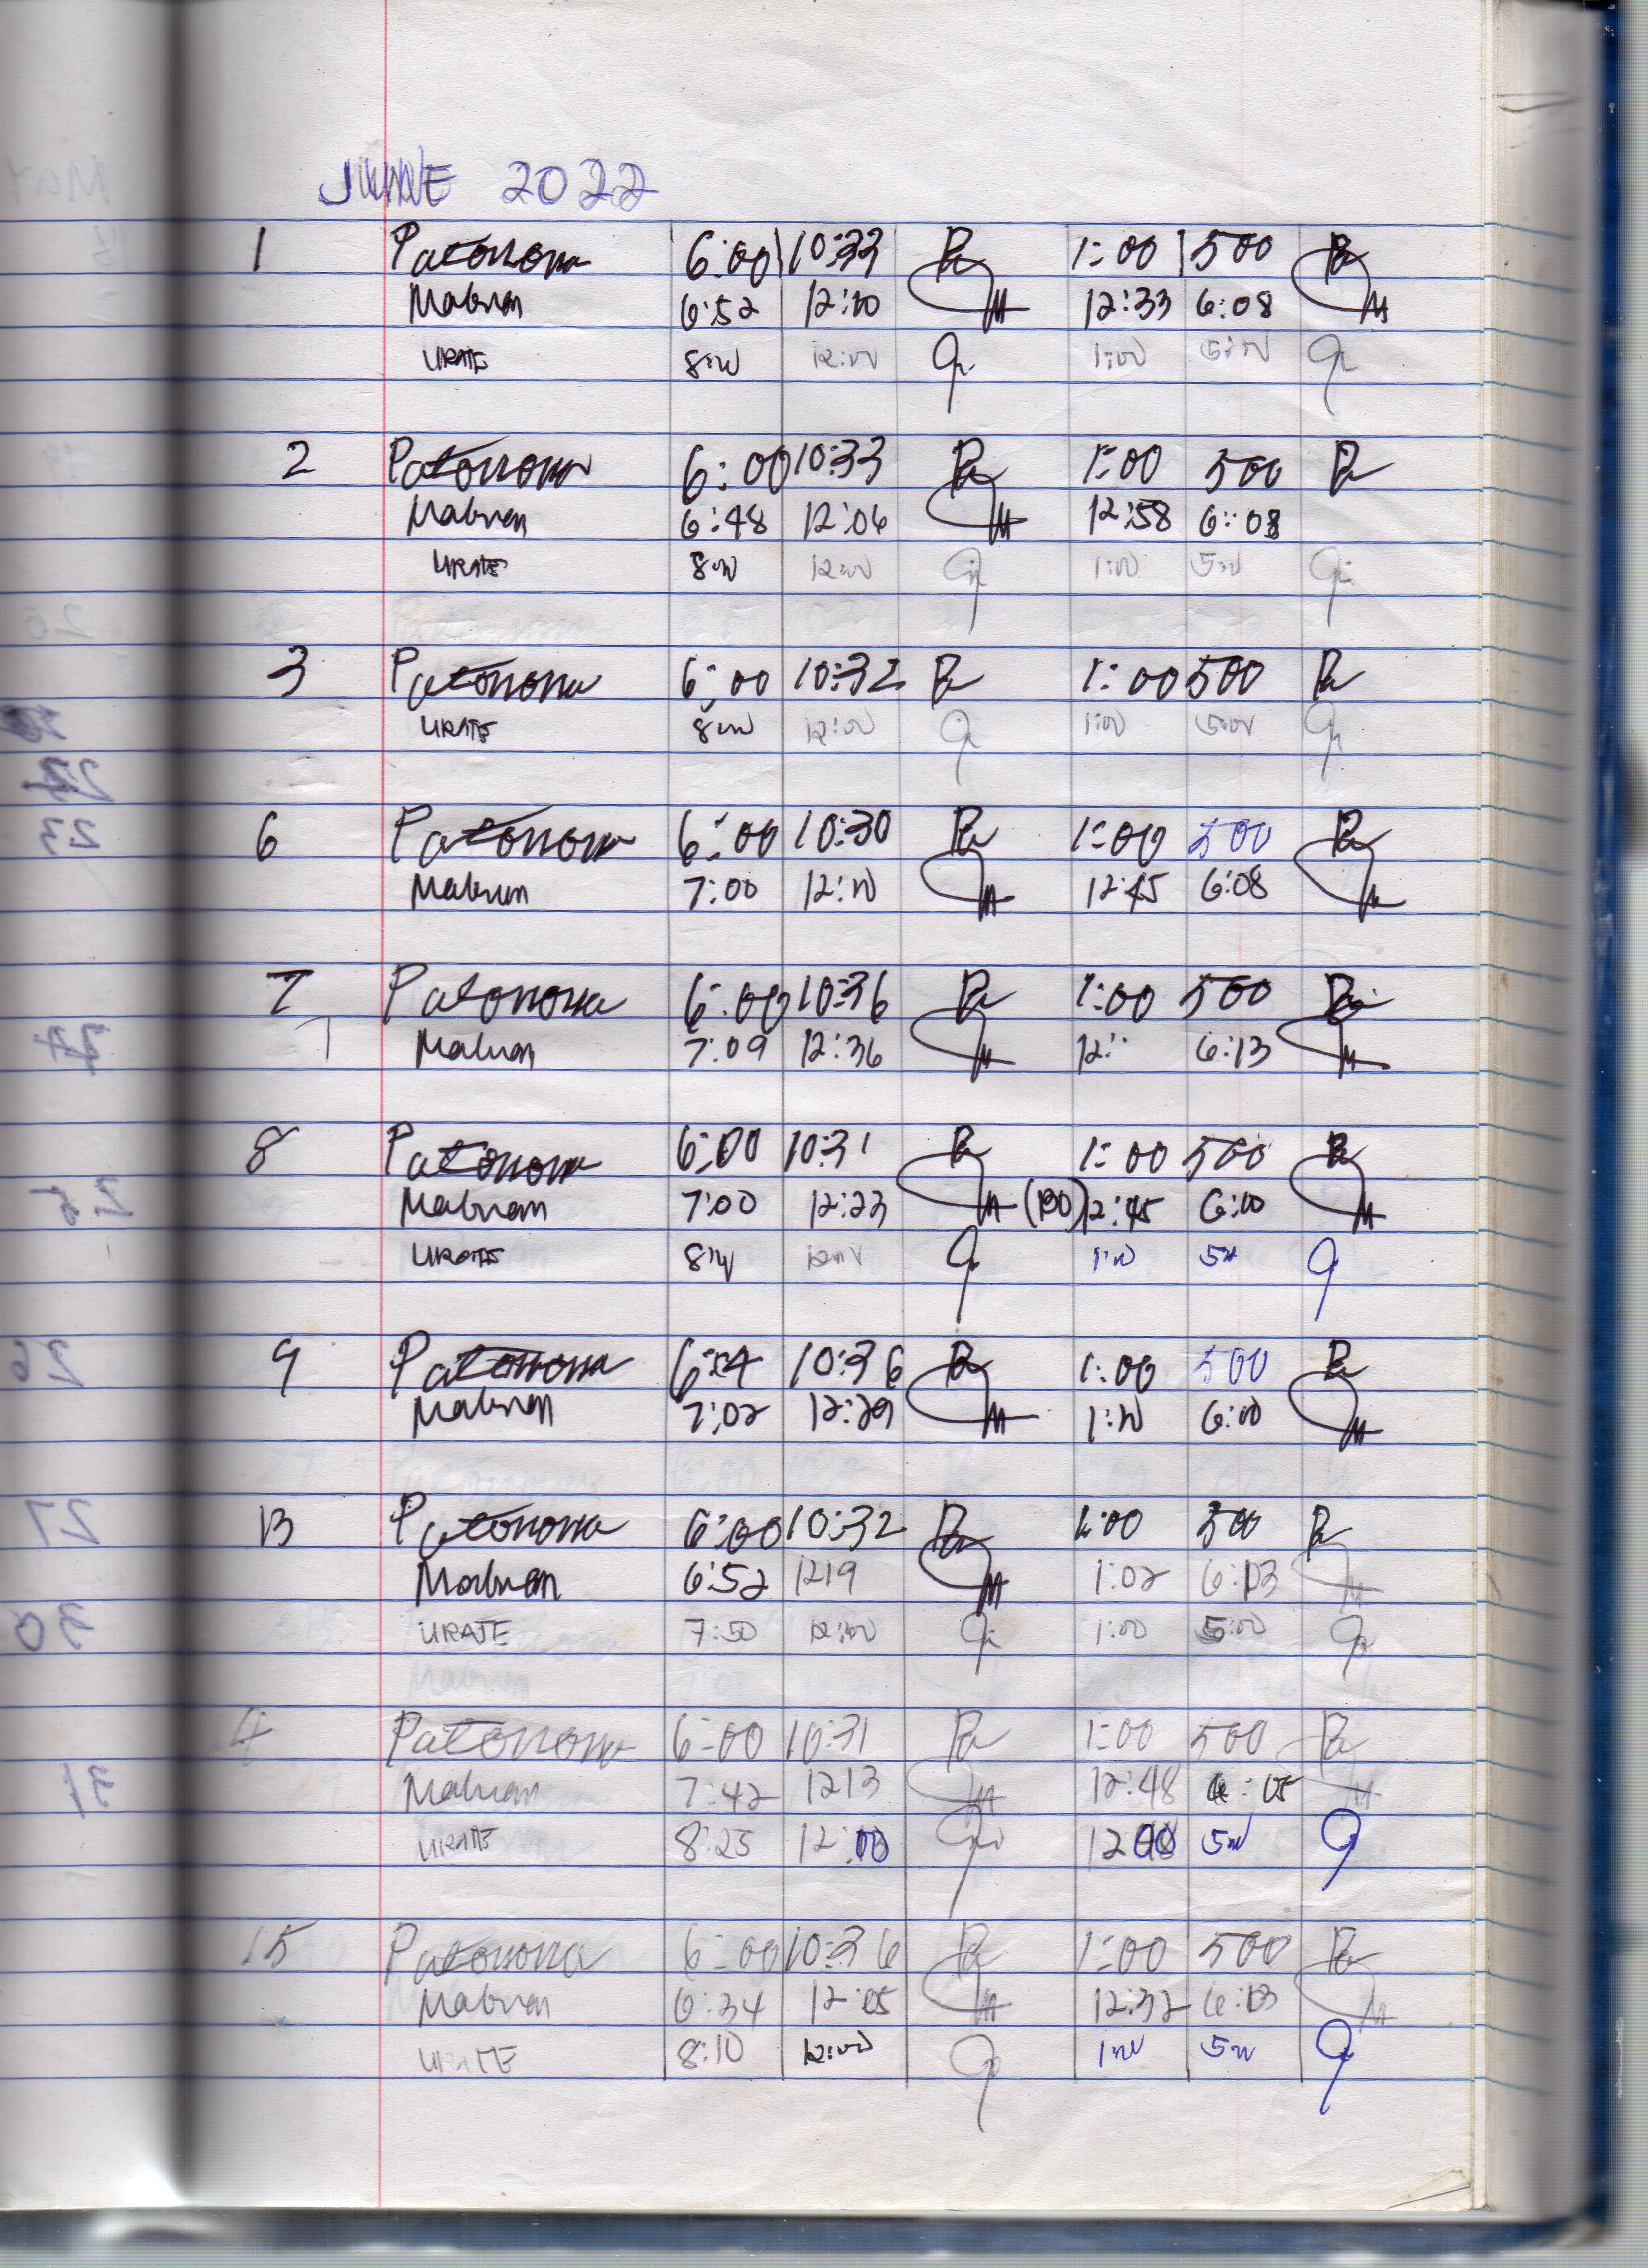 JUNE 2022
1 Patonona 6:00 10:33 1:00 500
Mabunan 6:52 12:10 12:33 6:08
URATE 8:00 12:00 1:00 5:00
2 Patonona 6:00 10:33 1:00 500
Mabunan 6:48 12:06 12:58 6:08
URATE 8:00 12:00 1:00 5:00
3 Patonona 6:00 10:32 1:00 500
URATE 8:00 12:00 1:00 5:00
6 Patonona 6:00 10:30 1:00 500
Mabunan 7:00 12:10 12:45 6:08
7 Patonona 6:00 10:36 1:00 500
Mabunan 7:09 12:36 12: 6:13
8 Patonona 6:00 10:31 1:00 500
Mabunan 7:00 12:23 12:45 6:10
URATE 8:00 12:00 1:00 5:00
9 Patonona 6:14 10:36 1:00 500
Mabunan 7:02 12:29 1:10 6:10
13 Patonona 6:00 10:32 1:00 500
Mabunan 6:52 1219 1:02 6:13
URATE 7:50 12:00 1:00 5:00
4 Patonona 6:00 10:31 1:00 500
Mabunan 7:42 1213 12:48 6:05
URATE 8:25 12:00 5:00
15 Patonona 6:00 10:36 1:00 500
Mabunan 6:34 12:05 12:32 6:13
URATE 8:10 12:00 1:00 5:00